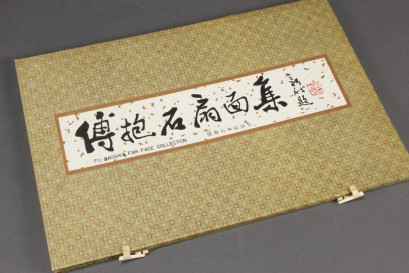 傅抱石扇面集
FU BAOSHI'S FAN FACE COLLECTION